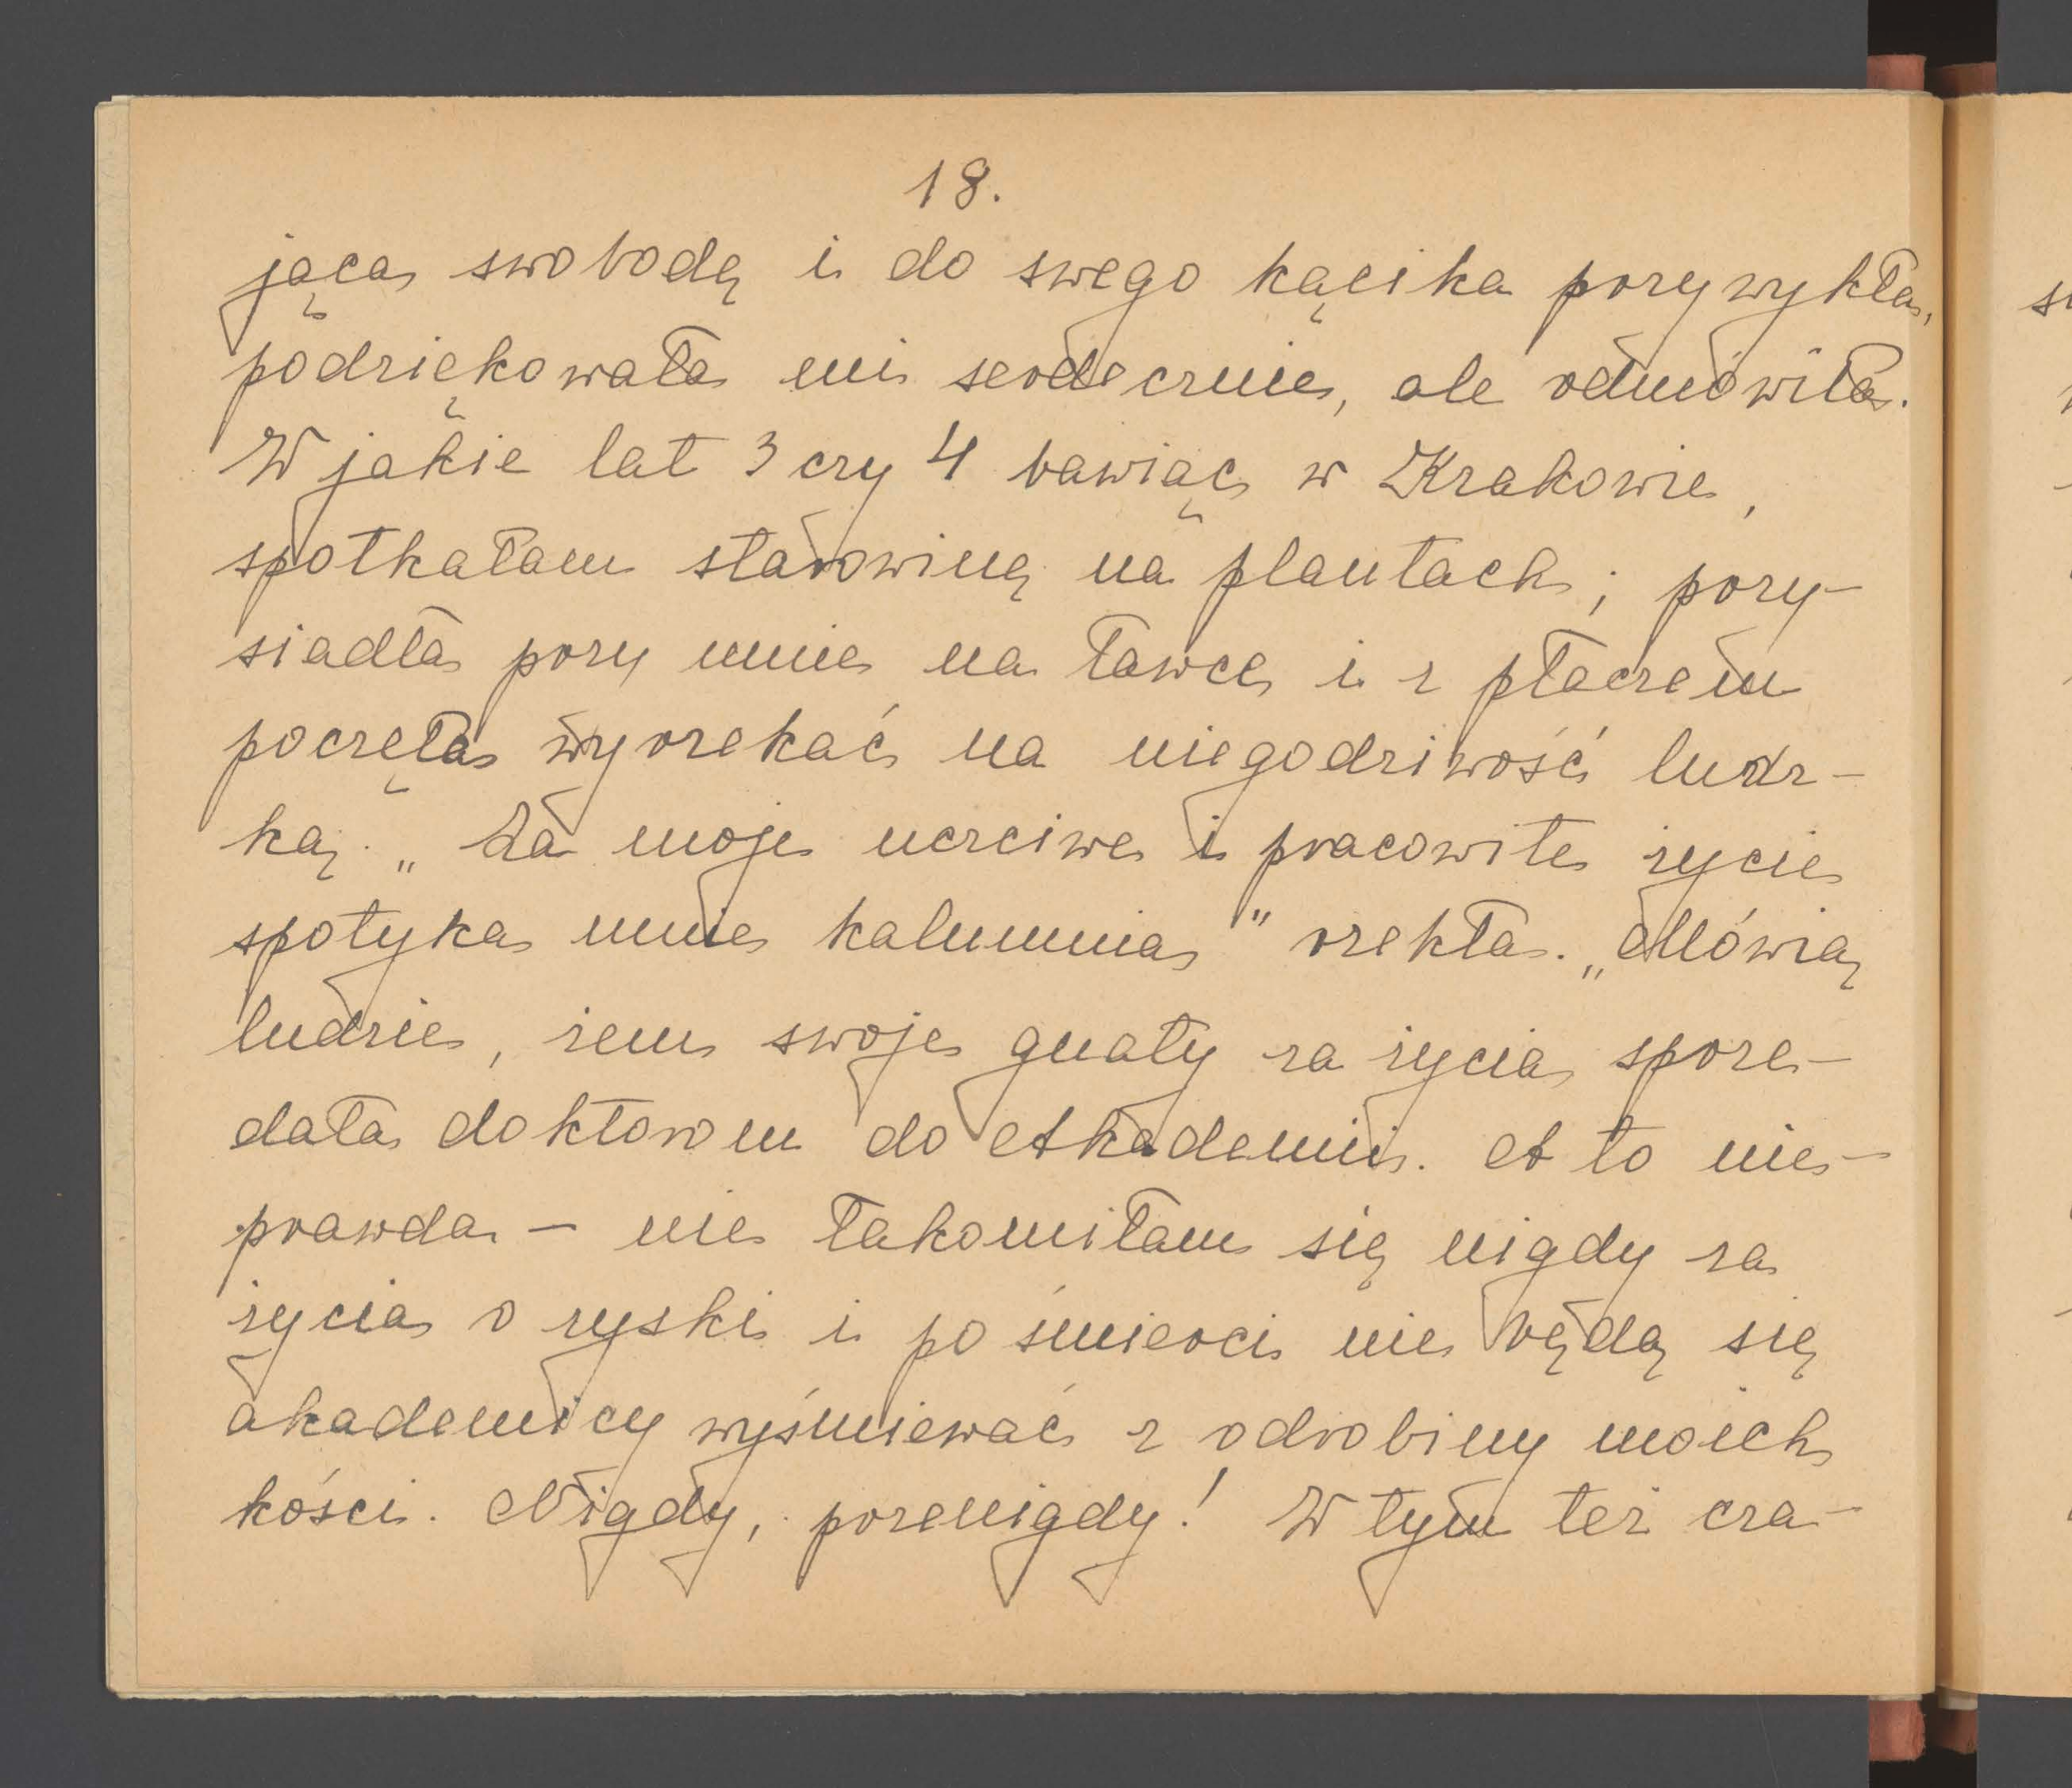 18.
jąca swobodę i do swego kącika przywykła,
podziękowała mi serdecznie, ale odmówiła.
W jakie lat 3 czy 4 bawiąc w Krakowie,
spotkałam starowinę na plantach; przy-
siadła przy mnie na ławce i z płaczem
poczęła wyrzekać na niegodziwość ludz-
ką. „Za moje uczciwe i pracowite życie
spotyka mnie kalumnia" rzekła. „Mówią
ludzie, żem swoje gnaty za życia sprze-
dała doktorom do Akademii. A to nie-
prawda - nie łakomiłam się nigdy za
życia o zyski i po śmierci nie będą się
akademicy wyśmiewać z odrobiny moich
kości. Nigdy, przenigdy! W tym też cza-